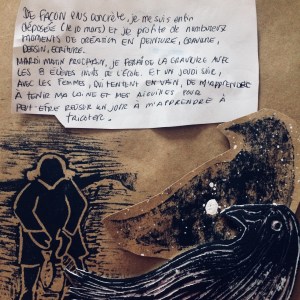 DE FAÇON PLUS CONCRÈTE, JE ME SUIS ENFIN
DÉPOSÉE (LE 10 MARS) ET JE PROFITE DE NOMBREUX
MOMENTS DE CRÉATION EN PEINTURE, GRAVURE,
DESSIN, ÉCRITURE.
MARDI MATIN PROCHAIN, JE FERAI DE LA GRAVURE AVEC
LES 8 ÉLÈVES INUITS DE L'ÉCOLE. ET UN JEUDI SOIR,
AVEC LES FEMMES, QUI TENTENT EN VAIN, DE M'APPRENDRE
À TENIR MA LAINE ET MES AIGUILLES POUR
PEUT-ÊTRE RÉUSSIR UN JOUR À M'APPRENDRE À
TRICOTER.